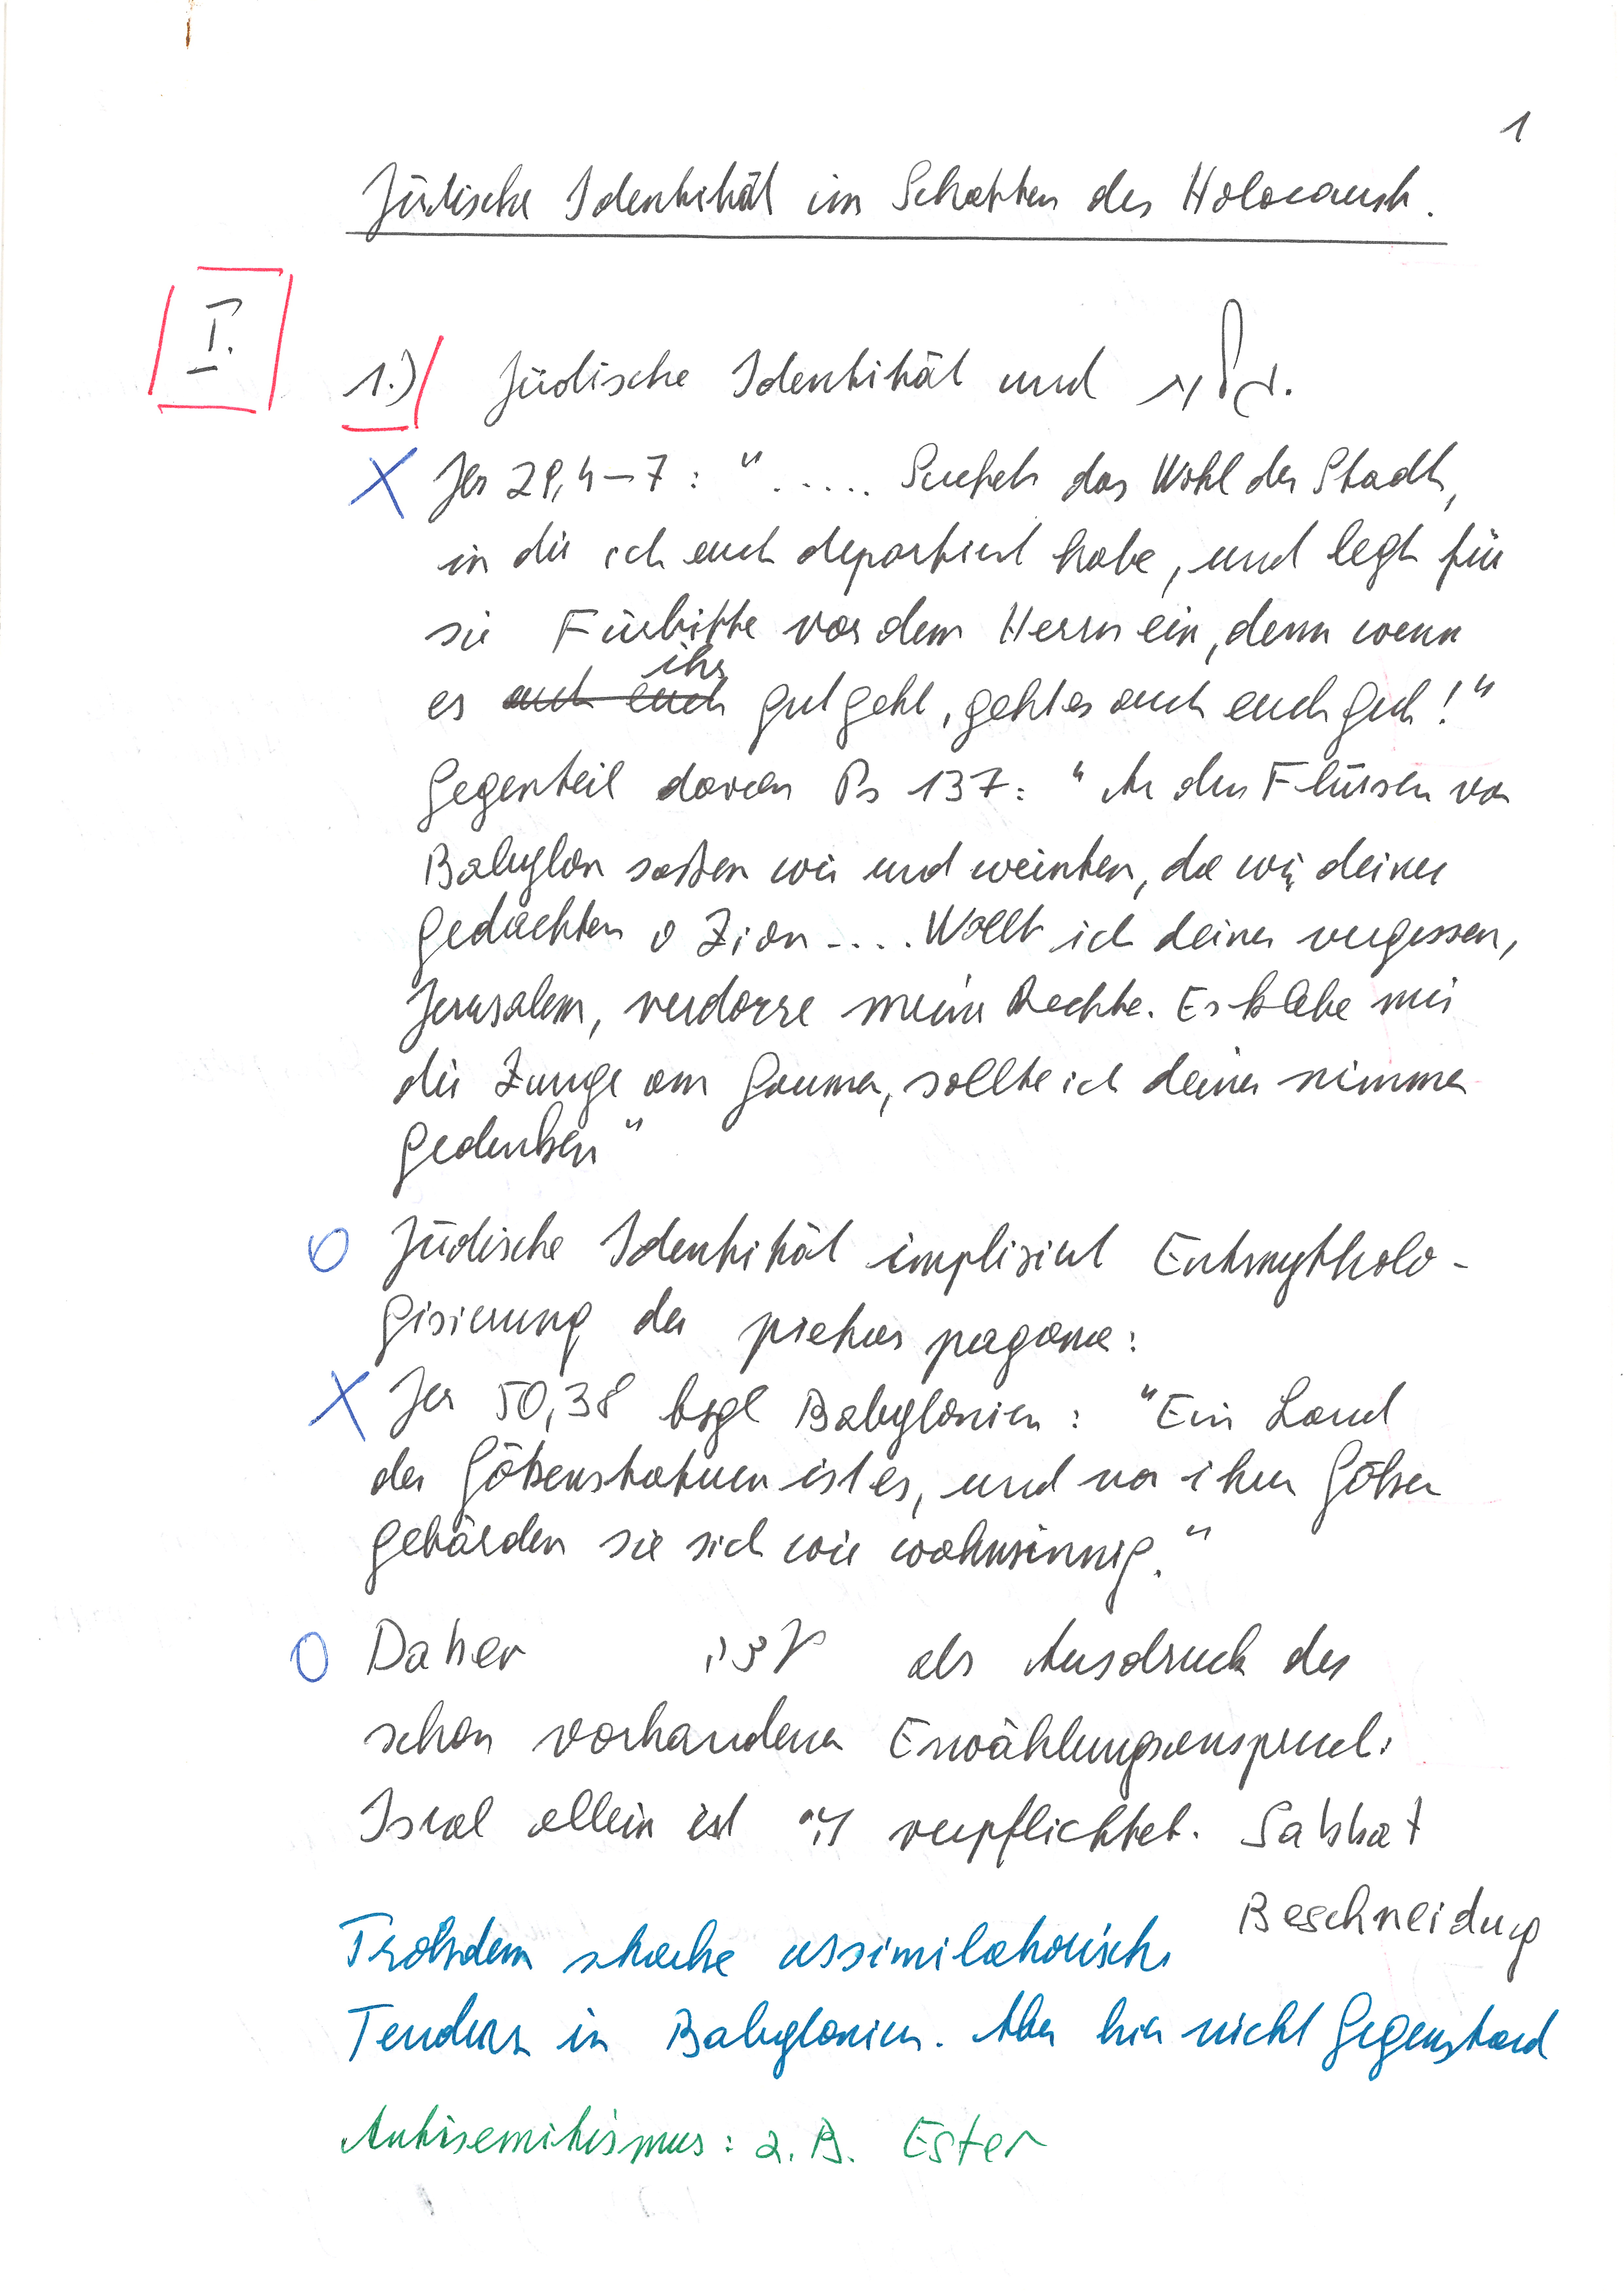 1
Jüdische Identität im Schatten des Holocaust.
I.
1.) Jüdische Identität und גלות.
X Jer 29,4–7: "..... Suchet das Wohl der Stadt,
in die ich euch deportiert habe, und legt für
sie Fürbitte vor dem Herrn ein, denn wenn
es auch euch ihr gut geht, geht es auch euch gut!"
Gegenteil davon Ps 137: "An den Flüssen von
Babylon saßen wir und weinten, da wir deiner
gedachten o Zion.... Wollt ich deiner vergessen,
Jerusalem, verdorre meine Rechte. Es klebe mir
die Zunge am Gaumen, sollte ich deiner nimmer
gedenken"
O Jüdische Identität impliziert Entmytholo-
gisierung der pietas pagana:
X Jer 50,38 bzgl Babylonien: "Ein Land
der Götzenstatuen ist es, und vor ihren Götzen
gebärden sie sich wie wahnsinnig."
O Daher als Ausdruck des
schon vorhandenen Erwählungsanspruch:
Israel allein ist verpflichtet. Sabbat
Beschneidung
Trotzdem starke assimilatorische
Tendenz in Babylonien. Aber hier nicht Gegenstand
Antisemitismus: z.B. Ester